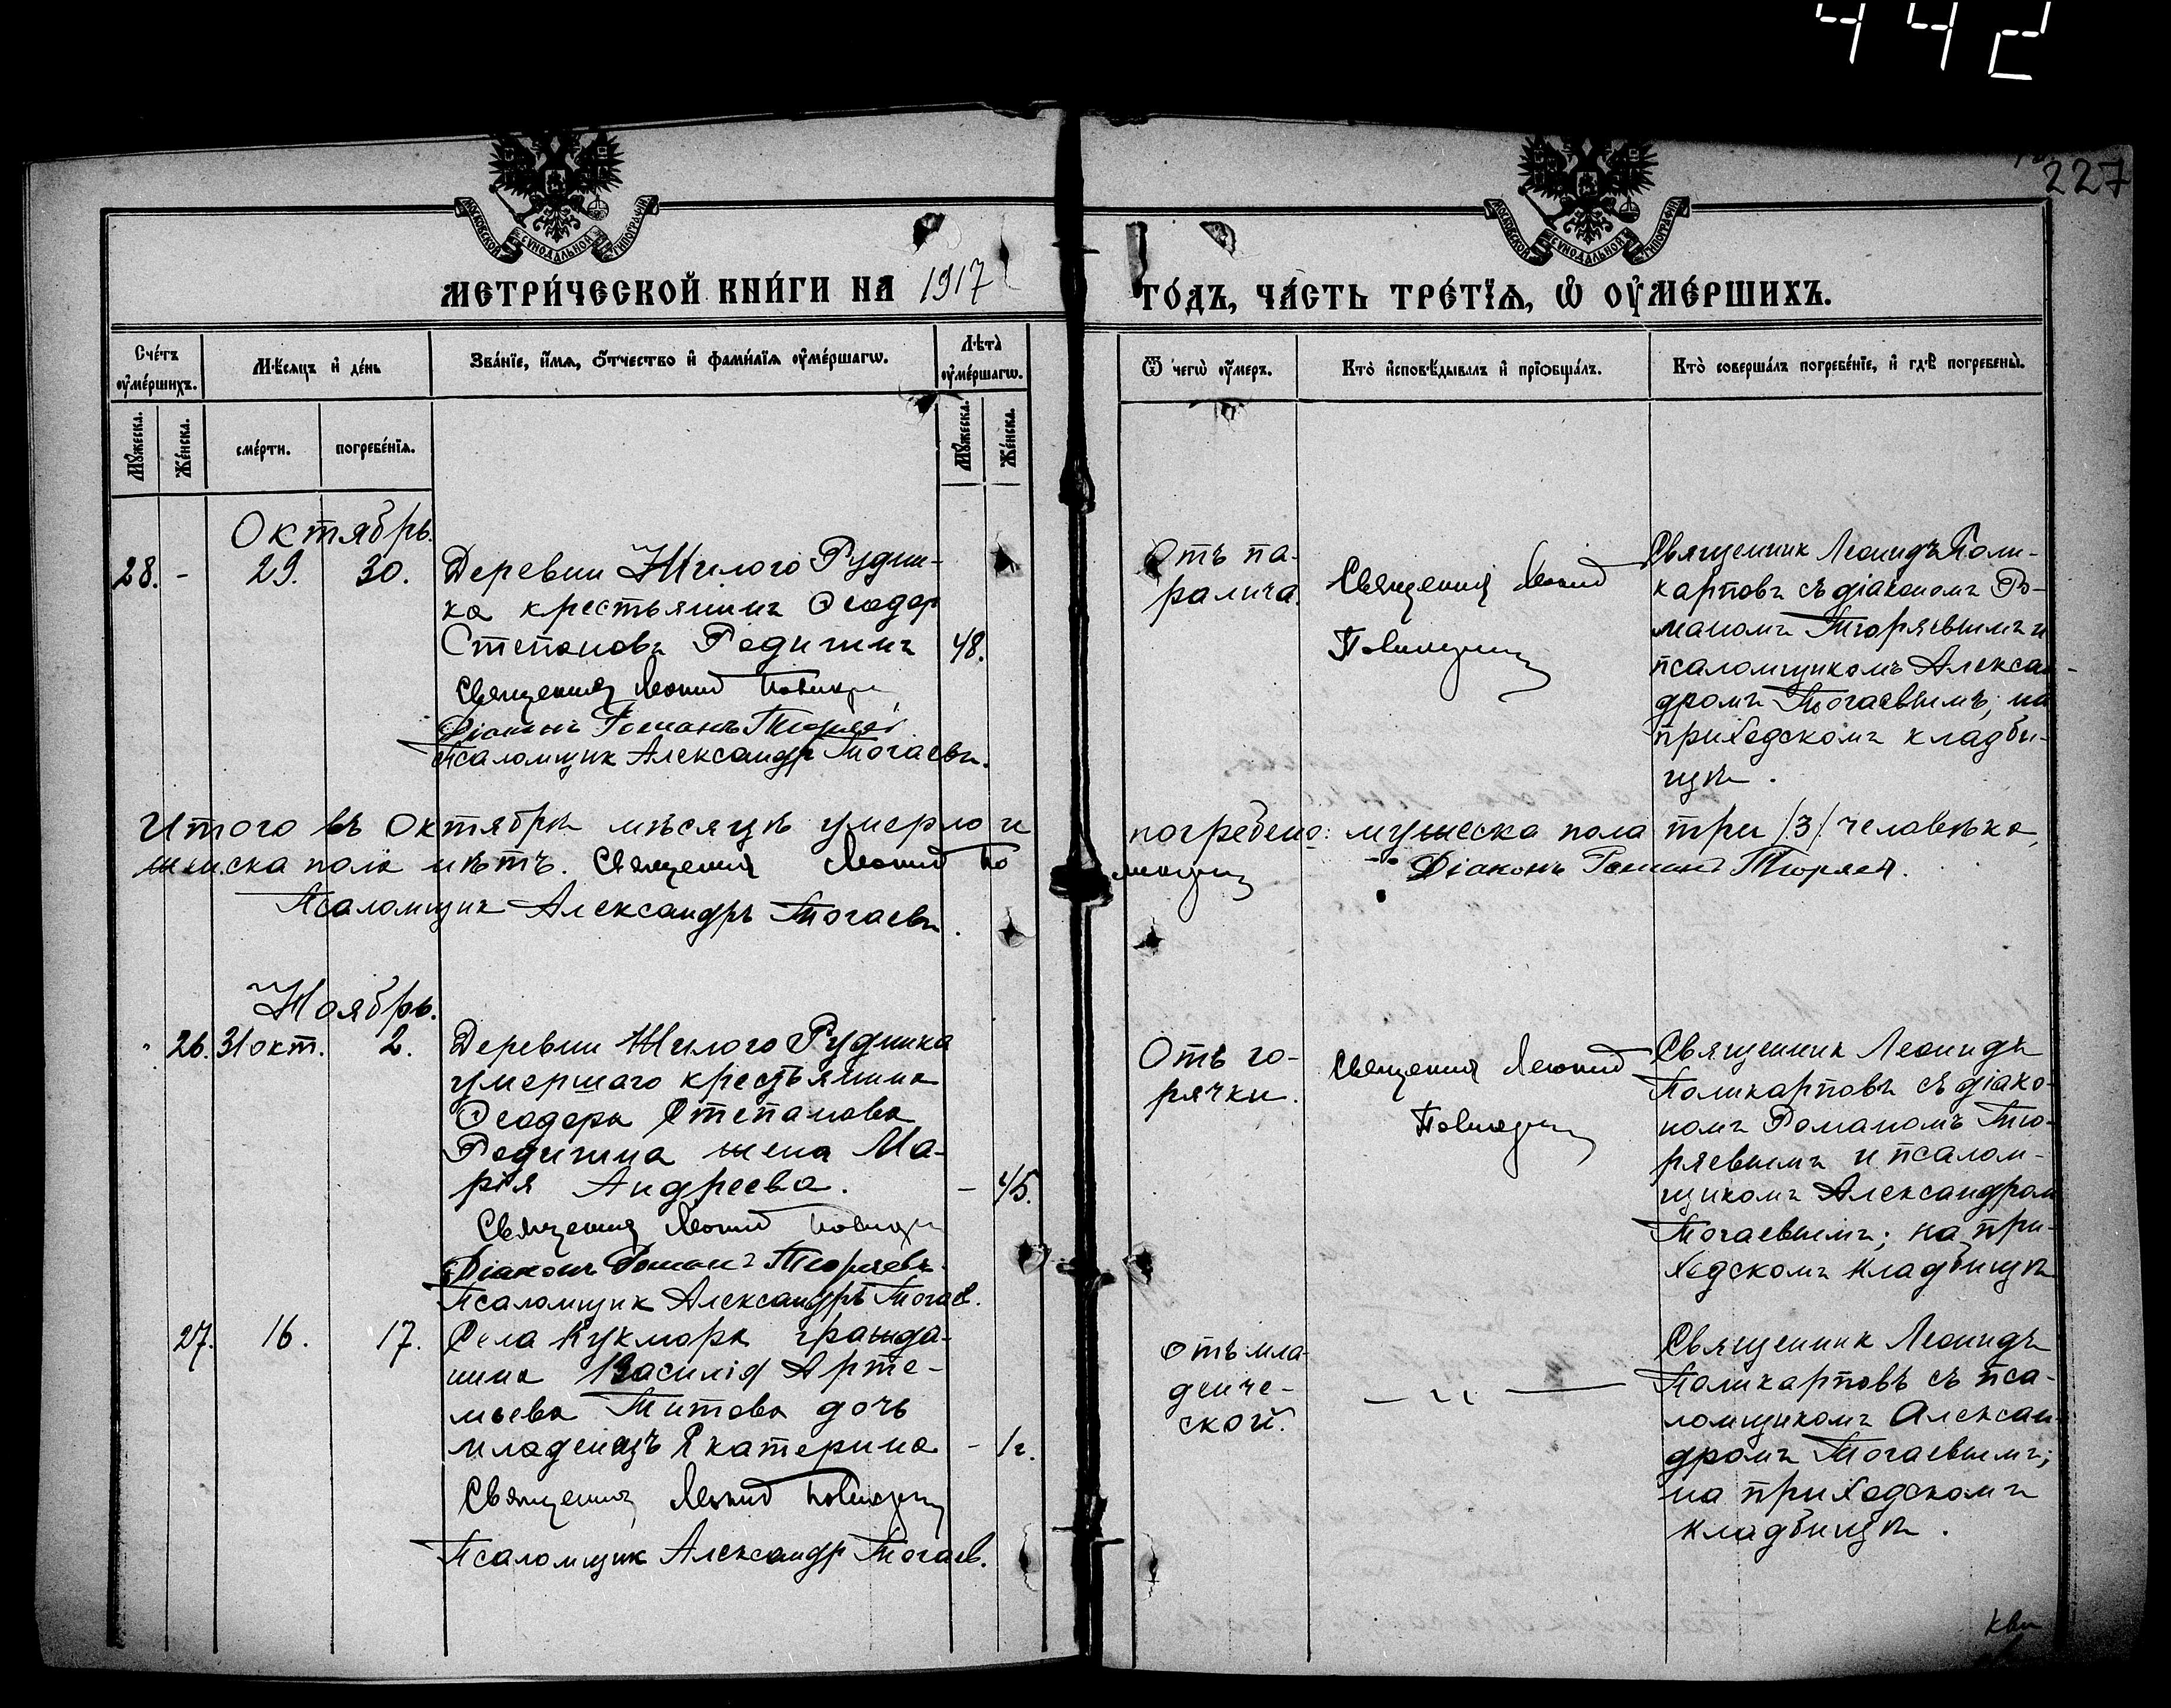 442
227
МОСКОВСКОЙ СѴНОДАЛЬНОЙ ТИПОГРАФІИ
МОСКОВСКОЙ СѴНОДАЛЬНОЙ ТИПОГРАФІИ
МЕТРИ́ЧЕСКОЙ КНИ́ГИ НА 1917 ГО́ДЪ, ЧА́СТЬ ТРЕ́ТЇѦ, Ѽ ОУ҆МЕ́РШИХЪ.
Сче́тъ оу҆ме́ршихъ.
Мѣ́сяцъ и҆ де́нь
Зва́нїе, и҆́мѧ, ѻ҆́тчество и҆ фами́лїѧ оу҆ме́ршагѡ.
Лѣта̀ оу҆ме́ршагѡ.
Ѿ чегѡ̀ оу҆́меръ.
Кто̀ и҆сповѣ́дывалъ и҆ прїѡбща́лъ.
Кто̀ соверша́лъ погребе́нїе, и҆ гдѣ̀ погребены̀.
Мꙋ́жеска.
Же́нска.
сме́рти.
погребе́нїѧ.
Мꙋ́жеска.
Же́нска.
Октябрь.
28. - 29. 30.
Деревни Жилого Рудни-
ка крестьянинъ Ѳеодор
Степановъ Редигинъ 48.
Священник Леонид Поликарп
Діаконъ Романъ Тюряев
Псаломщик Александр Тогаевъ.
Отъ па-
ралича.
Священник Леонид
Поликарпов
Священник Леонидъ Поли-
карповъ съ діакономъ Ро-
маномъ Тюряевымъ и
псаломщикомъ Алексан-
дромъ Тогаевымъ; на
приходскомъ кладби-
щѣ.
Итого въ Октябрѣ мѣсяцѣ умерло и погребено: мужеска пола три /3/ человѣка,
женска пола нѣтъ. Священник Леонид Поликарпов Діаконъ Роман Тюряев.
Псаломщик Александръ Тогаевъ.
Ноябрь.
26. 31 окт. 2.
Деревни Жилого Рудника
умершаго крестьянина
Ѳеодора Степанова
Редигина жена Ма-
рія Андреева. - 45.
Священник Леонид Поликарп
Діаконъ Роман Тюряевъ.
Псаломщик Александръ Тогаев.
Отъ го-
рячки.
Священник Леонид
Поликарпов
Священник Леонидъ
Поликарповъ съ діако-
номъ Романомъ Тю-
ряевымъ и псалом-
щикомъ Александром
Тогаевымъ; на при-
ходскомъ кладбищѣ
27. 16. 17.
Села Кукмора гражда-
нина Василія Арте-
мьева Титова дочь
младенецъ Екатерина - 1 г.
Священник Леонид Поликарпов
Псаломщик Александр Тогаев.
отъ мла-
денче-
ской.
— „ —
Священник Леонидъ
Поликарповъ съ пса-
ломщикомъ Алексан-
дромъ Тогаевымъ;
на приходскомъ
кладбищѣ.